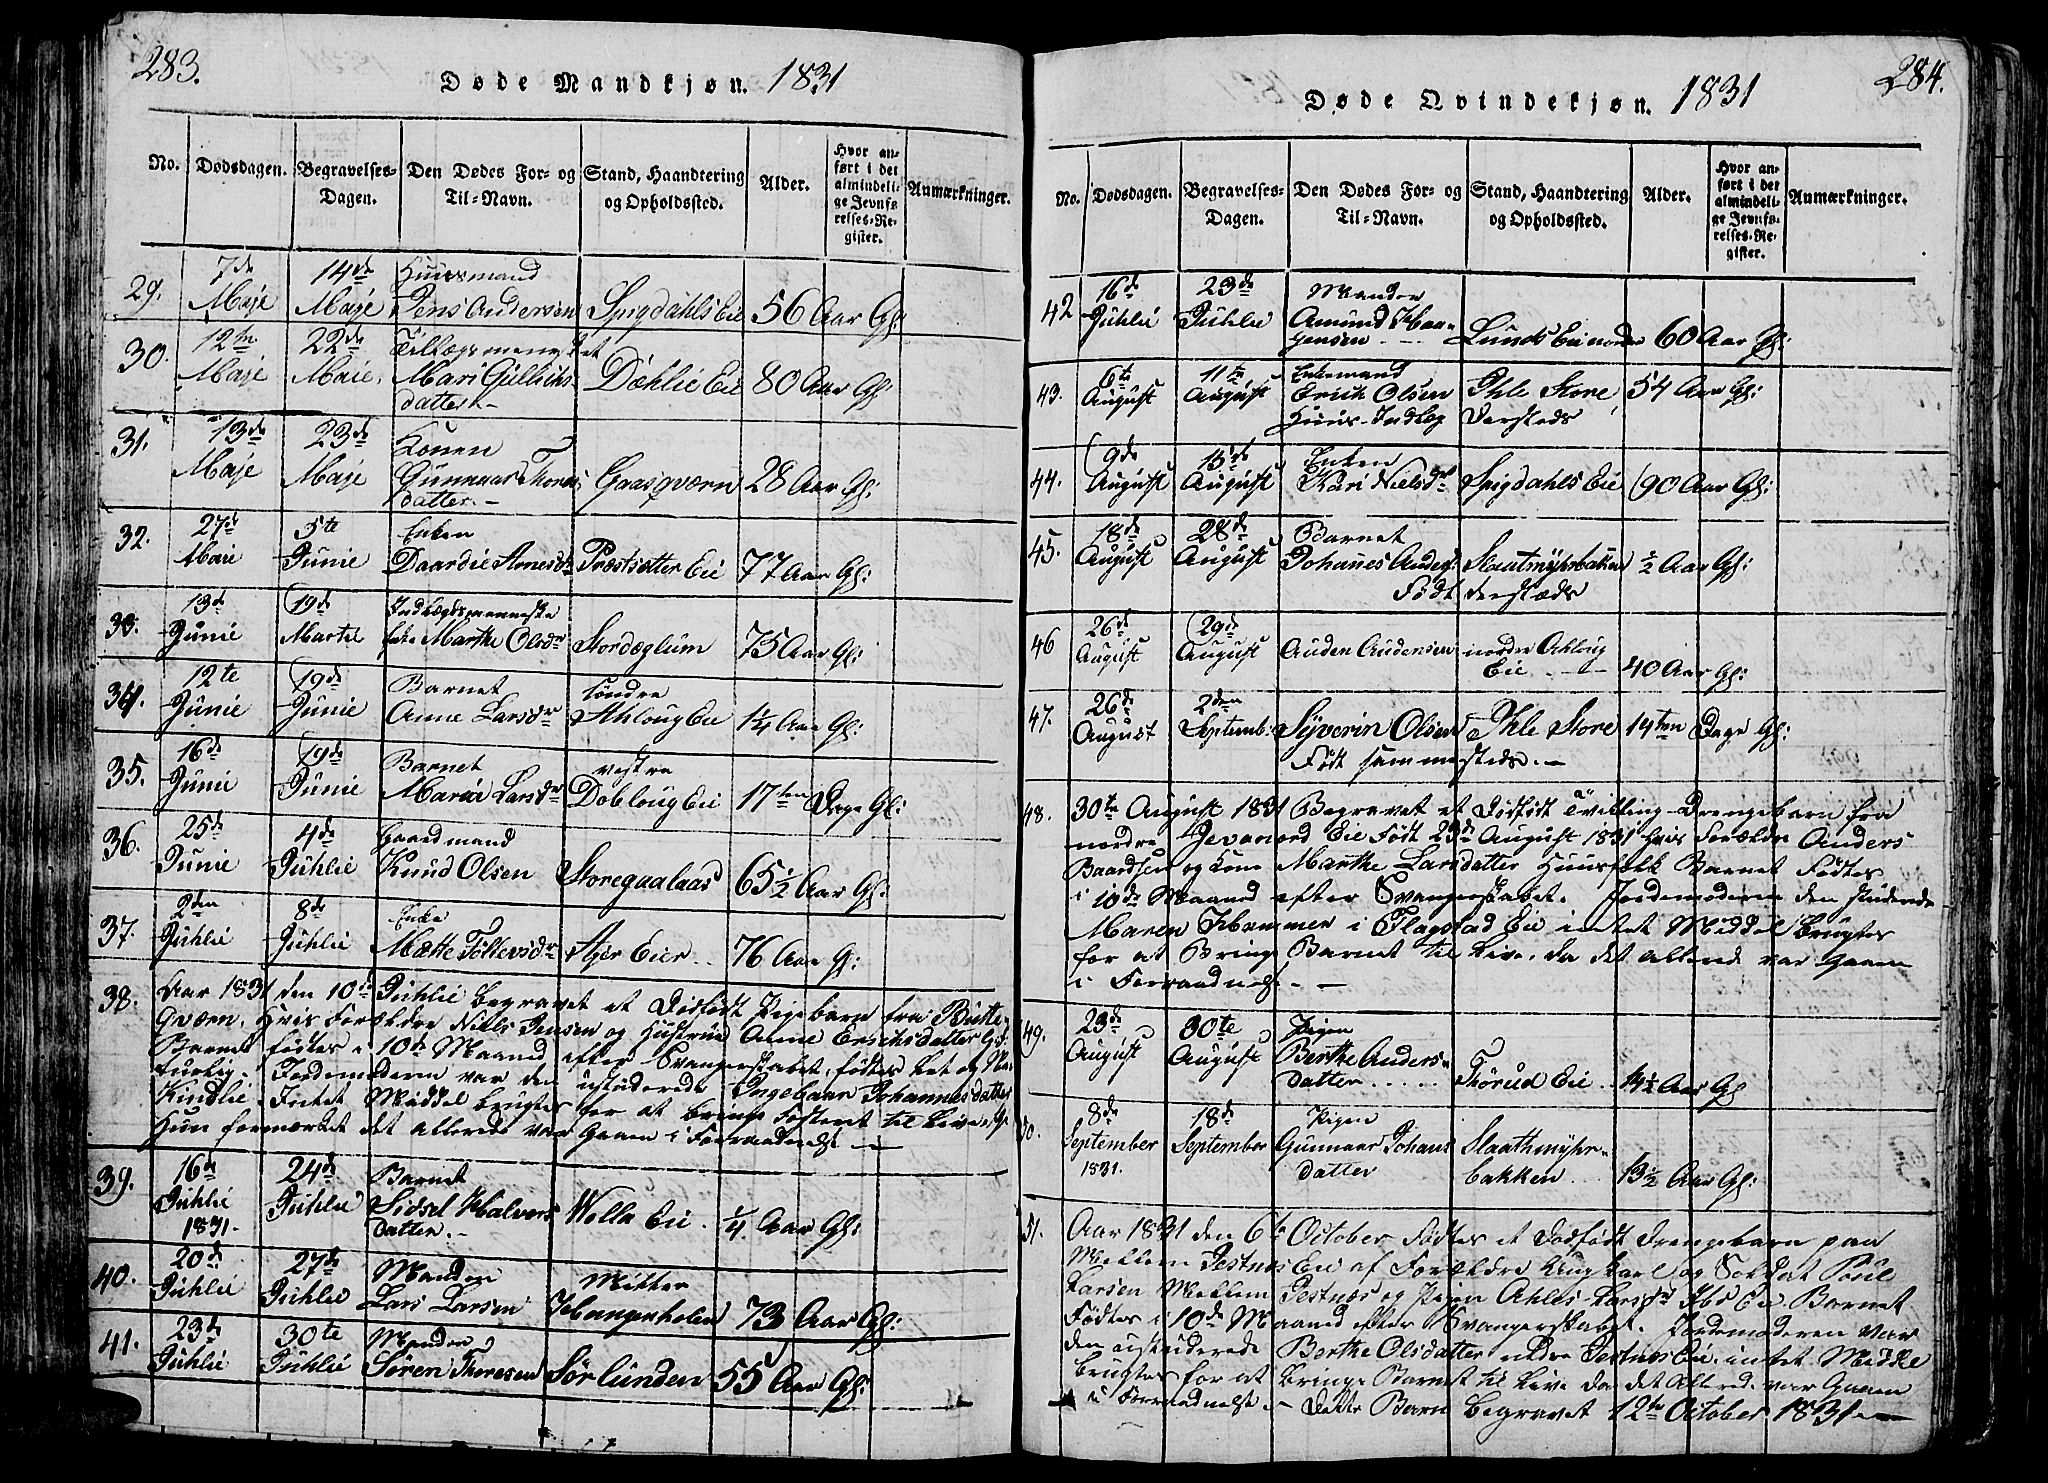 283.
Døde Mandkjøn. 1831
No. Dødsdagen. Begravelses-Dagen. Den Dødes For- og Til-Navn. Stand, Haandtering og Opholdssted. Alder. Hvor anført i det almindelige Jevnførelses-Register. Anmærkninger.
29. 7de Maje 14de Maje Huusmand Jens Andersen Spigdahls Eie 56 Aar Gl:
30. 12te Maje 22de Maie. Tillægsmennesket Mari Gullichsdatter.- Dæhlie Eie 80 Aar Gl:
31. 13de Maje 23de Maje Konen Gunnaar Thoresdatter.- Gaasqværn 28 Aar Gl:
32. 27de Maie 5te Junie Enken Daardie Arnesdr Præstsætter Eie 77 Aar Gl:
33. 13de Junie 19de Martii Indlægdsmenneske Enke Marthe Olsdr Stordæglum 75 Aar Gl:
34. 12te Junie 19de Junie Barnet Anne Larsdr søndre Ahloug Eie 1/4 Aar Gl:
35. 16de Junie 19de Junie Barnet Maria Larsdr vestre Dobloug Eie 17ten Dage Gl:
36. 25de Junie 4de Juhlie Gaardmand Knud Olsen Storegaalaas 65 1/2 Aar Gl:
37. 2den Juhlie 8de Juhlie Enke Mætte Tollevsdr Ajer Eier.. 76 Aar Gl:
38. Aar 1831 den 10de Juhlie begravet et Dødfødt Pigebarn fra Butte-
Qværn. Hvis Forældre Niels Jensen og Hustrue Anne Erichsdatter
Barnet fødtes i 10de Maaned efter Svangerskabet, fødtes Let og Na-
turlig. Jordemoderen var den ustuderede Ingebaar Johannesdatter
Kindlie. Intet Middel brugtes for at bringe Fosteret til Live,
Hun formærket det allerede var Gaaen i Forraadnelse —
39. 16de Juhlie 1831.- 24de Juhlie Barnet Sidsel Halvorsdatter.- Wolla Eie. 1/4 Aar Gl:
40. 20de Juhlie 27de Juhlie Manden Lars Larsen Mitter Hangerholen 73 Aar Gl:
41. 23de Juhlie 30te Juhlie Manden Søren Thoresen Sørlunden 55 Aar Gl:
284.
Døde Qvindekjøn. 1831
No. Dødsdagen. Begravelses-Dagen. Den Dødes For- og Til-Navn. Stand, Haandtering og Opholdssted. Alder. Hvor anført i det almindelige Jevnførelses-Register. Anmærkninger.
42 16de Juhlie 23de Juhlie Manden Amund Haagensen Lunds Eie nordre 60 Aar Gl:
43. 6te August 11te August Enkemand Erick Olsen Huus-Indlag Ihle Store Dersteds 54 Aar Gl:
44. 9de August 15de August Enken Kari Nielsdr Spigdahls Eie 90 Aar Gl:
45. 18de August 28de August Barnet Johanes Anders: Født Slaatmyhrbaken derstæds 1/2 Aar Gl:
46 26de August 29de August Auden Audensen nordre Ahloug Eie 40 Aar Gl:
47. 26de August 2den Septemb: Syverin Olsen Født sammesteds.- Ihle Store 14ten Dage Gl:
48. 30te August 1831 Begravet et Dødfødt Tvilling-Drengebarn fra
nordre Jevanord Eie Født 23de August 1831 hvis Forældre Anders
Baardsen og Kone Marthe Larsdatter Huusfolk Barnet Fødtes
i 10de Maaned efter Svangerskabet. Jordemoderen den studerede
Maren Hammer i Flagstad Eie intet Middel brugtes
for at Bringe Barnet til Live, da det allered var Gaaen
i Forraadnelse. —
49. 23de August 30te August Pigen Berthe Andersdatter Thorud Eie 14 1/2 Aar Gl
50. 8de September 1831. 18de September Pigen Gunnaar Johansdatter Slaathmyhrbakken 13 1/2 Aar Gl:
51. Aar 1831 den 6te October Fødtes et Dødfødt Drengebarn paa
Mellem Jestnes Eie af Forældre Ung Karl og Soldat Poul
Larsen Mellem Jestnæs og Pigen Ahles Larsdr Ibs Eie Barnet
Fødtes i 10de Maaned efter Svangerskabet. Jordmoderen var
den ustuderede Berthe Olsdatter nedre Jestnes Eie, intet Middel
brugtes for at bringe Barnet til Live da det Allered var Gaaen
i Forraadnelse.- Dette Barn begravet 12te October 1831.—